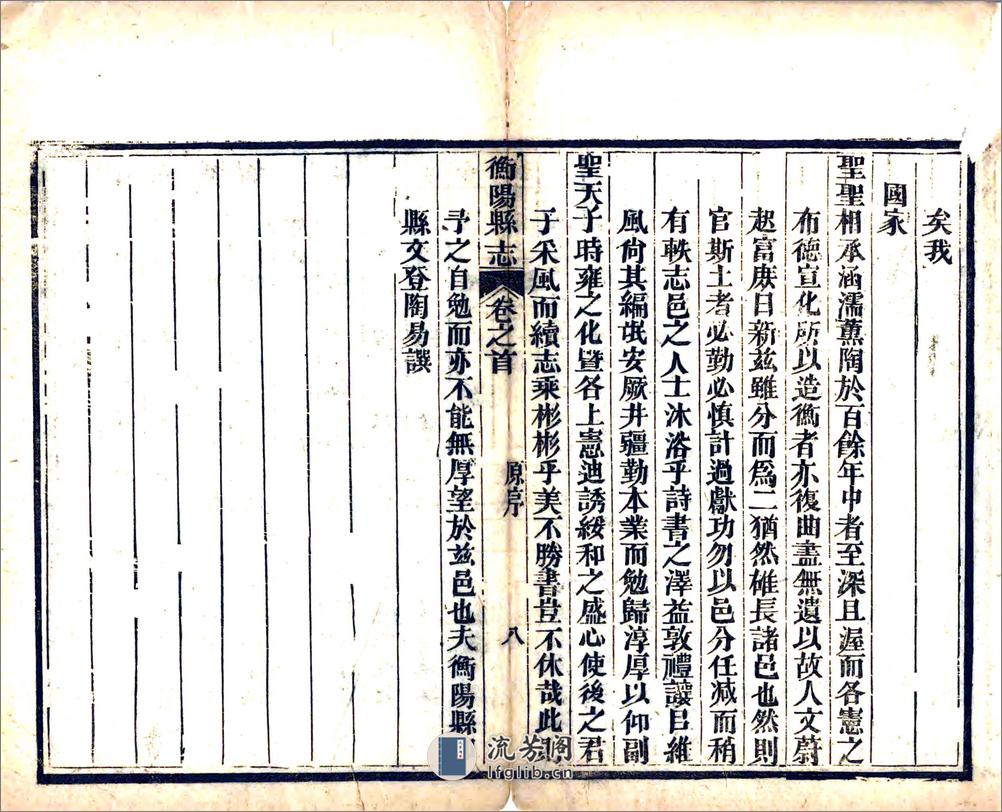 矣我
國家
聖聖相承涵濡薰陶於百餘年中者至深且渥而各憲之
布德宣化所以造衡者亦復曲盡無遺以故人文蔚
起富庶日新兹雖分而爲二猶然雄長諸邑也然則
官斯土者必勤必慎計過獻功勿以邑分任减而稍
有軼志邑之人士沐浴乎詩書之澤益敦禮讓㠯維
風尙其編氓安厥井疆勤本業而勉歸淳厚以仰副
聖天子時雍之化暨各上憲迪誘綏和之盛心使後之君
子采風而續志乘彬彬乎美不勝書豈不休哉此則
衡陽縣志 卷之首 原序 八
予之自勉而亦不能無厚望於兹邑也夫衡陽縣
縣文登陶易譔
流芳阁
lfglib.cn